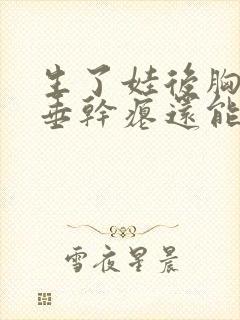 生了娃後胸
垂幹癟還能
雪夜星晨